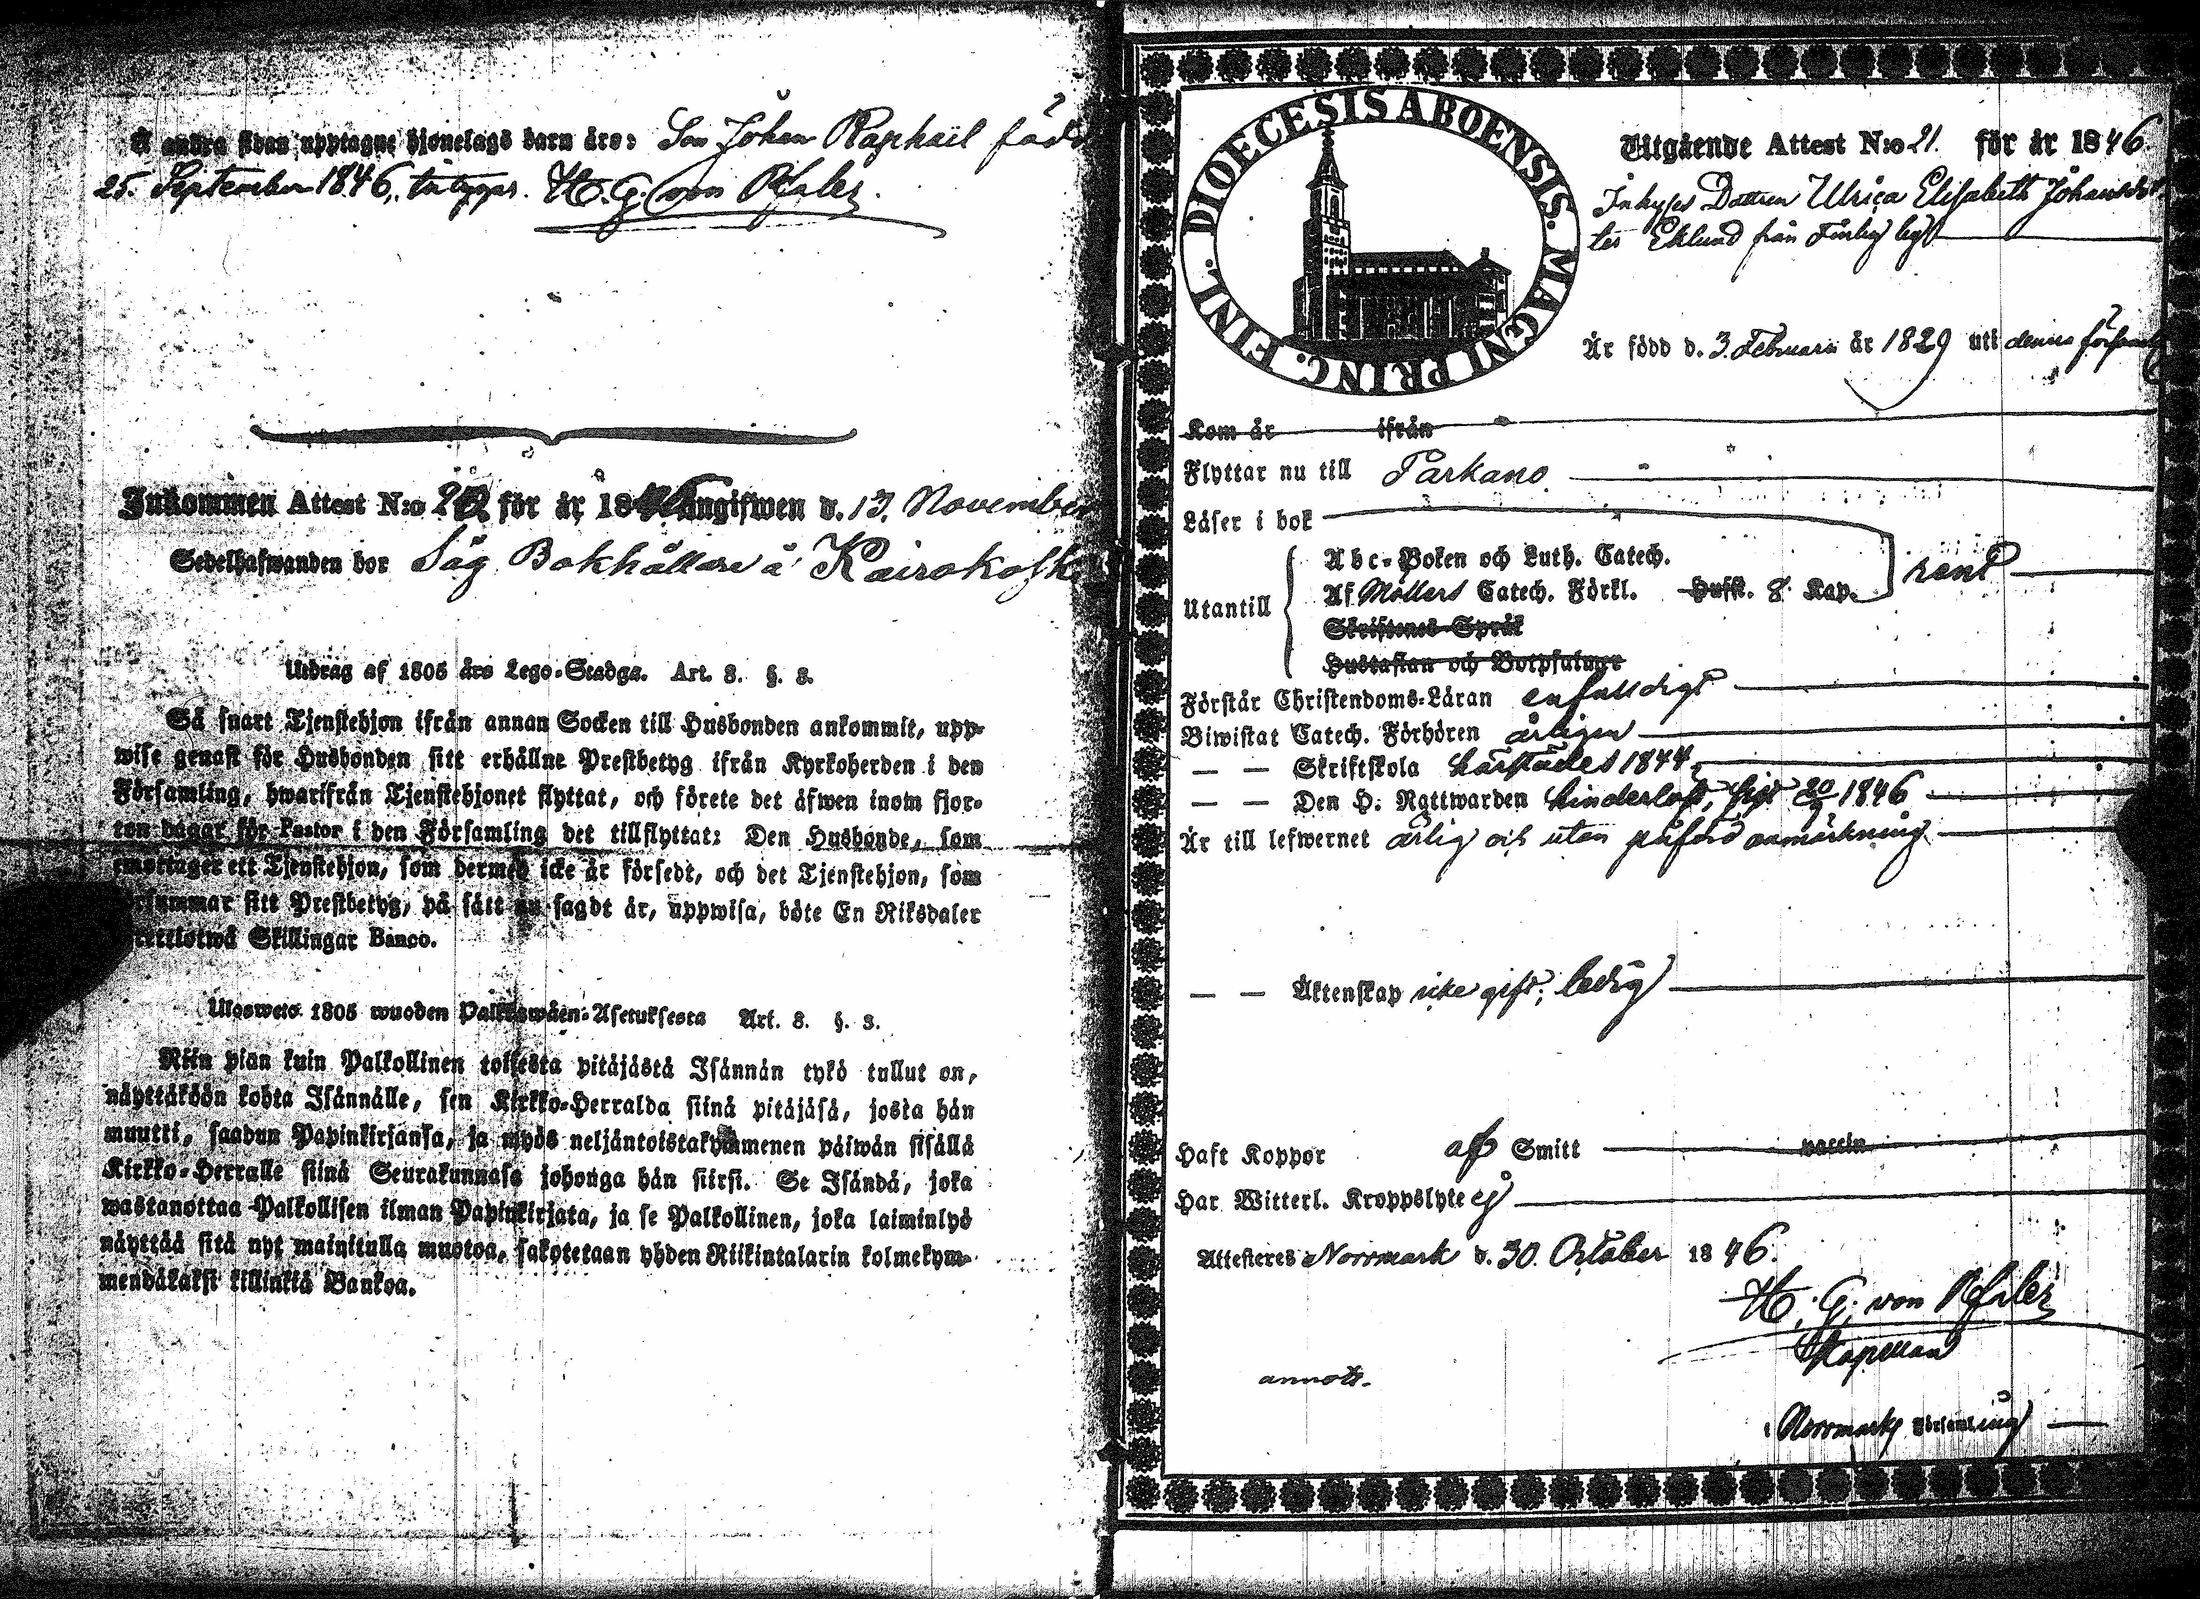 å andra sidan upptagne hjonelags barn äro: Son Johan Raphaël född
25. September 1846, intygar. H. G. von Pfaler.
Inkommen Attest N:o för år 1846 angifwen d. 13. November
Sedelhafwanden bor Såg Bokhållare å Kairokoski
Utdrag af 1805 års Lego-Stadga. Art. 8. §. 3.
Så snart Tjenstehjon ifrån annan Socken till Husbonden ankommit, upp-
wise genast för Husbonden sitt erhållne Prestbetyg ifrån Kyrkoherden i den
Församling, hwarifrån Tjenstehjonet flyttat, och förete det äfwen inom fjor-
ton dagar för Pastor i den Församling det tillflyttat: Den Husbonde, som
emottager ett Tjenstehjon, som dermed icke är försedt, och det Tjenstehjon, som
försummar sitt Prestbetyg, på sätt nu sagdt är, uppwisa, böte En Riksdaler
trettiotwå Skillingar Banco.
Ulosweto 1805 wuoden Palkkawäen-Asetuksesta Art. 8. §. 3.
Niin pian kuin Palkollinen toisesta pitäjästä Isännän tykö tullut on,
näyttäköön kohta Isännälle, sen Kirkko-Herralda siinä pitäjäsä, josta hän
muutti, saadun Papinkirjansa, ja myös neljäntoistakymmenen päiwän sisällä
Kirkko-Herralle siinä Seurakunnasa johonga hän siirsi. Se Isändä, joka
wastanottaa Palkollisen ilman Papinkirjata, ja se Palkollinen, joka laiminlyö
näyttää sitä nyt mainitulla muotoa, sakotetaan yhden Riikintalarin kolmekym-
mendäkaksi killinkiä Bankoa.
DIOECESIS ABOENSIS. MAGNI PRINC. FINL.
Utgående Attest N:o 21. för år 1846
Inhyses Dottren Ulrica Elisabeth Johansdot-
ter Eklund från
Är född d. 3. Februarii år 1829 uti denna församling
Kom år ifrån
Flyttar nu till Parkano
Läser i bok
Utantill
Abc-Boken och Luth. Catech.
Af Möllers Catech. Förkl. Husst. 8. Kap. rent
Skriftenes Språk
Hustaflan och Botpsalmer
Förstår Christendoms-Läran enfaldigt
Biwistat Catech. Förhören årligen
— — Skriftskola härstädes 1844
— — Den H. Nattwarden 20/9 1846
Är till lefwernet ärlig och utan påförd anmärkning
— — Äktenskap icke gift; ledig
Haft Koppor af Smitt vaccin
Har Witterl. Kroppslyte ej
Attesteres Norrmark d. 30. October 1846.
H. G. von Pfaler
Kapellan
annott.
i Norrmarks Församling